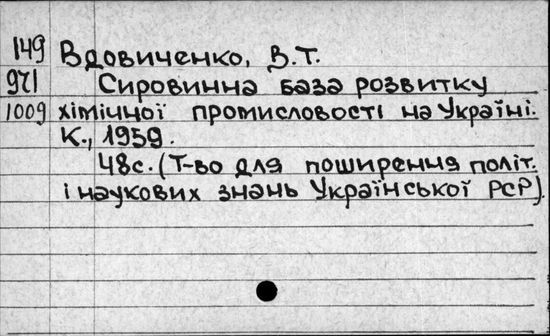 149 Вдовиченко, В.Т.
971 Сировинна база розвитку
1009 хімічної промисловості на Україні.
К., 1959.
48с. (Т-во для поширення політ.
і наукових знань Української РСР).